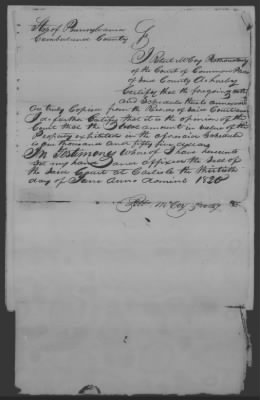 State of Pennsylvania
Cumberland County
I Robert McCoy Prothonotary
of the Court of Common Pleas
of said County do hereby
Certify that the foregoing oath
and Schedule thereto annexed
are truly Copied from the Records of said Court and
I do further Certify that it is the opinion of the
Court that the amount in value of the
Property exhibited in the aforesaid Schedule
is one thousand and fifty five dollars
In Testimony whereof I have hereunto
set my hand and affixed the seal of
the said Court at Carlisle the thirtieth
day of June Anno Domini 1820
Rob McCoy Prothy